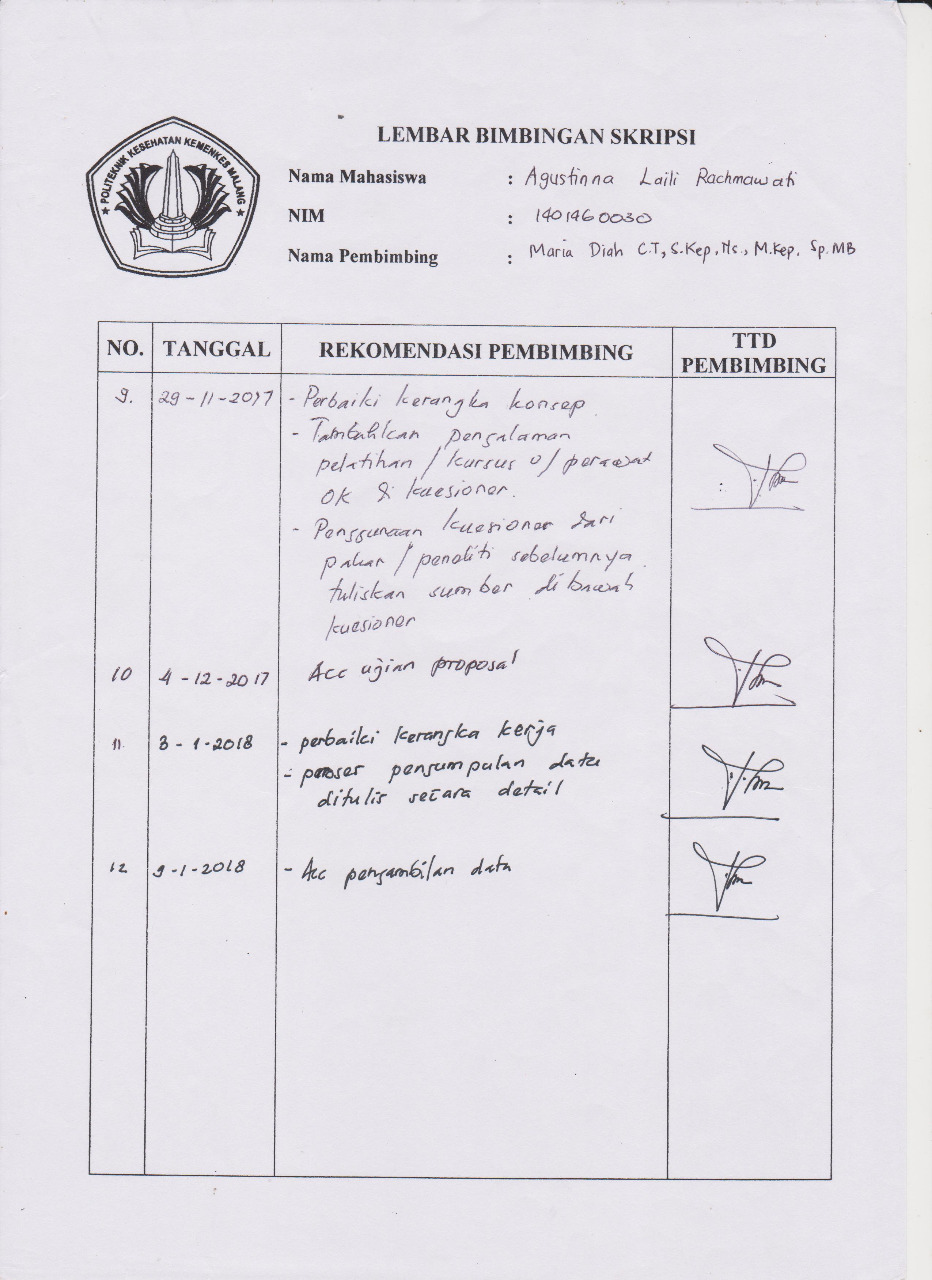 POLITEKNIK KESEHATAN KEMENKES MALANG
LEMBAR BIMBINGAN SKRIPSI
Nama Mahasiswa : Agustinna Laili Rachmawati
NIM : 1401460030
Nama Pembimbing : Maria Diah C.T, S.Kep, Ns., M.Kep. Sp.MB
NO. TANGGAL REKOMENDASI PEMBIMBING TTD PEMBIMBING
9. 29-11-2017 - Perbaiki kerangka konsep.
- Tambahkan pengalaman
pelatihan / kursus u/ perawat
OK di kuesioner.
- Penggunaan kuesioner dari
pakar / peneliti sebelumnya
tuliskan sumber dibawah
kuesioner
10 4-12-2017 Acc ujian proposal
11. 3-1-2018 - perbaiki kerangka kerja
- proses pengumpulan data
ditulis secara detail
12 9-1-2018 - Acc pengambilan data